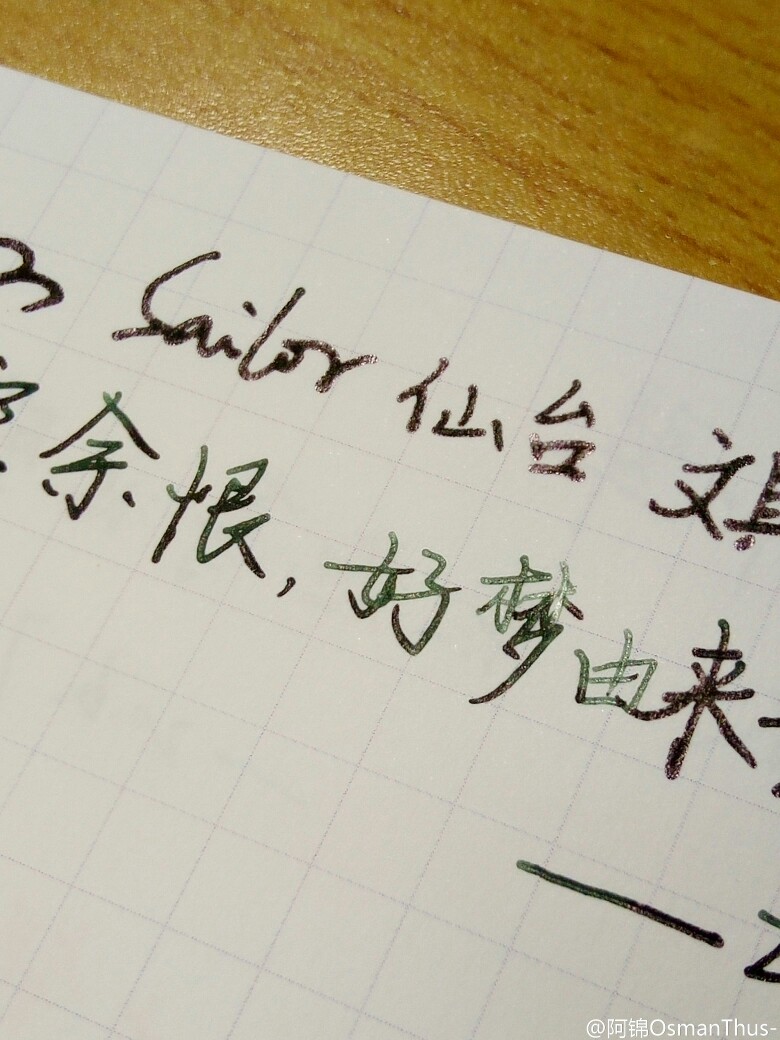 Sailor 仙台 文具
余恨，好梦由来
一
@阿锦OsmanThus-